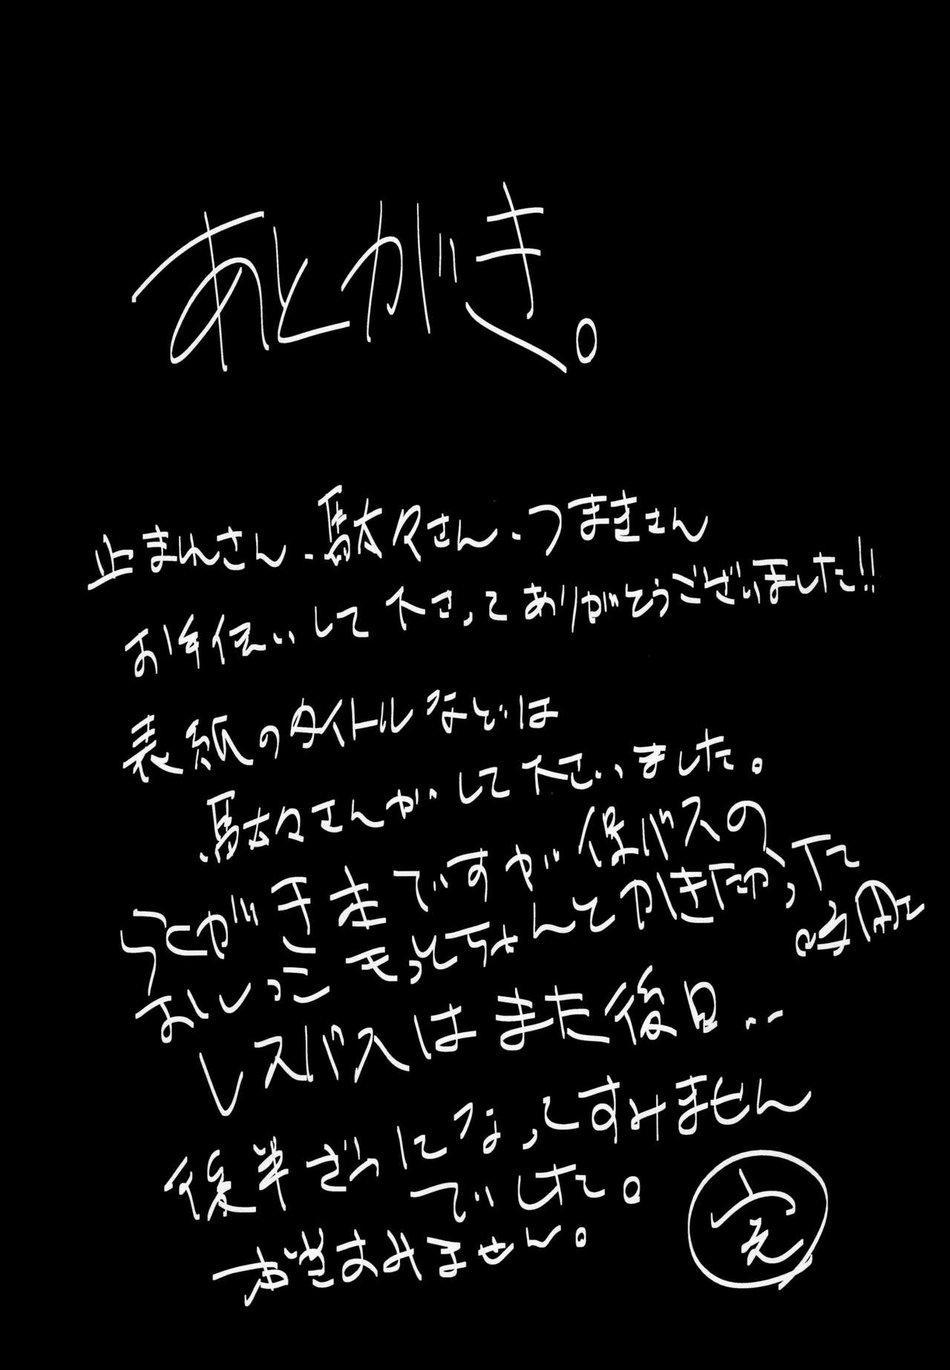 あとがき。
止まれさん、駄々さん、つまきさん
お手伝いして下さってありがとうございました!!
表紙のタイトルなどは
駄々さんがして下さいました。
らくがき本ですが保バスの
おしっこもっとちゃんとかきたかった
レズバスはまた後日..
後半ざつになってすみません
でした。
すみません。
完